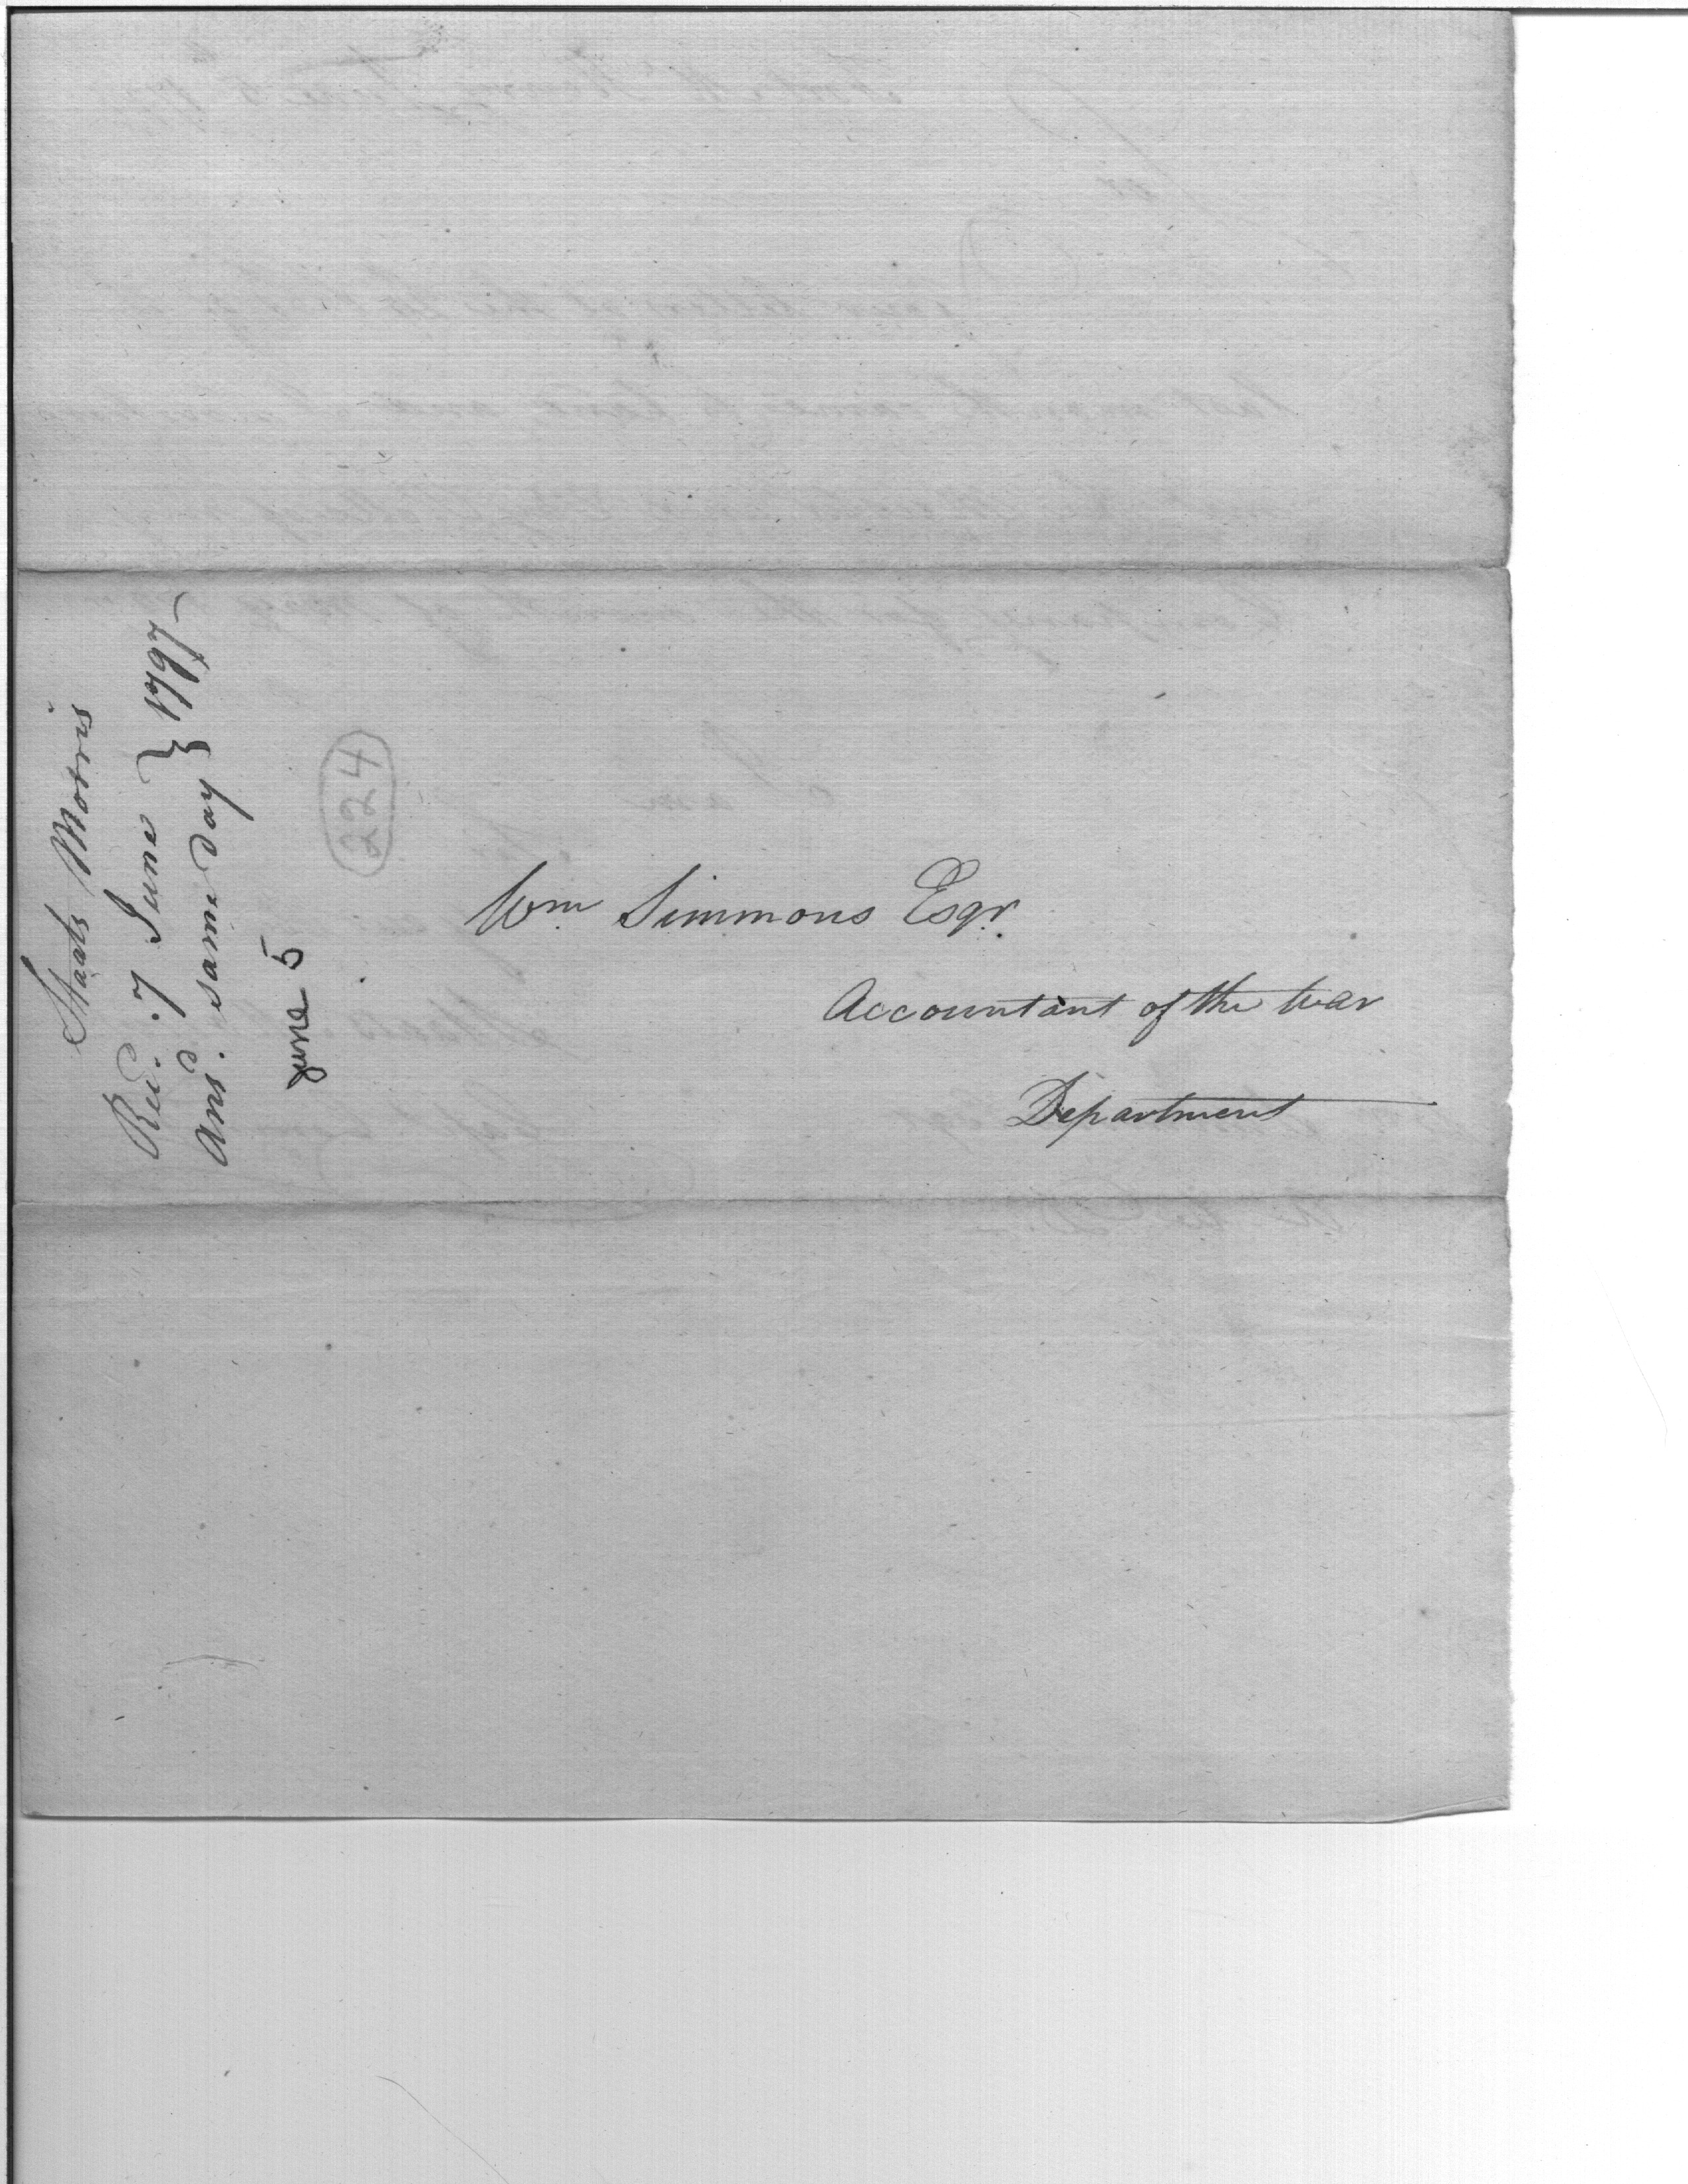 Staats Morris
Recd. 7 June } 1797
Ansd. same day
June 5
224
Wm Simmons Esqr.
Accountant of the War
Department